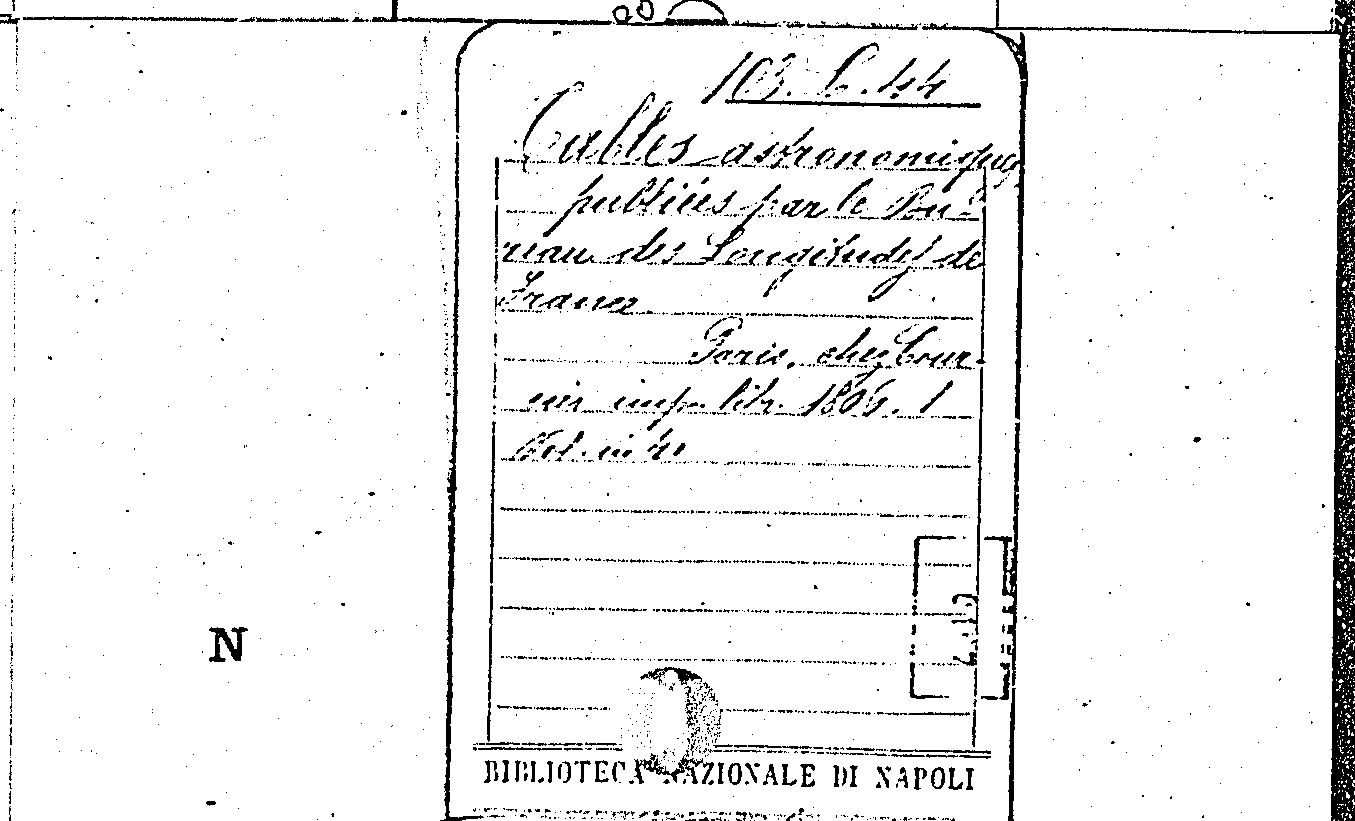 103. C. 44
Tables astronomiques
publiées par le Bu-
reau des Longitudes de
France.
Paris, chez Cour-
cier imp. libr. 1806. 1
Vol. in 4º
N
BIBLIOTECA NAZIONALE DI NAPOLI